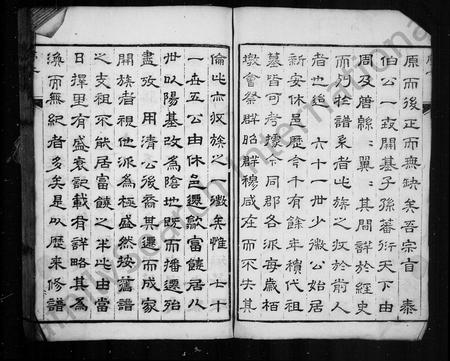 原而後正而無缺矣吾宗自 泰
伯公一設開基子孫蕃衍天下由
周及唐緜緜翼翼其間詳於經史
而列於譜系者此族之收於前人
者也迨 六十一世少微公始居
新安休邑歷今千有餘年積代祖
墓皆可考據合同郡各派每歲栢
墩會祭群昭群穆咸在而不失其
倫此亦收族之一徵矣惟 七十
一世五公由休邑遷歙富饒居八
世以陽基改為陰地既而播遷殆
盡攷 用清公後裔其遷而成家
開族者視他派為極盛然按舊譜
之支祖不能居富饒之半此由當
日擇里有盛衰記載有詳略其為
渙而無紀者多矣是以歷來修譜
Family Search International